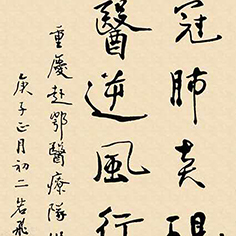 冠肺
醫逆風行
重慶赴鄂醫療隊
庚子正月初二